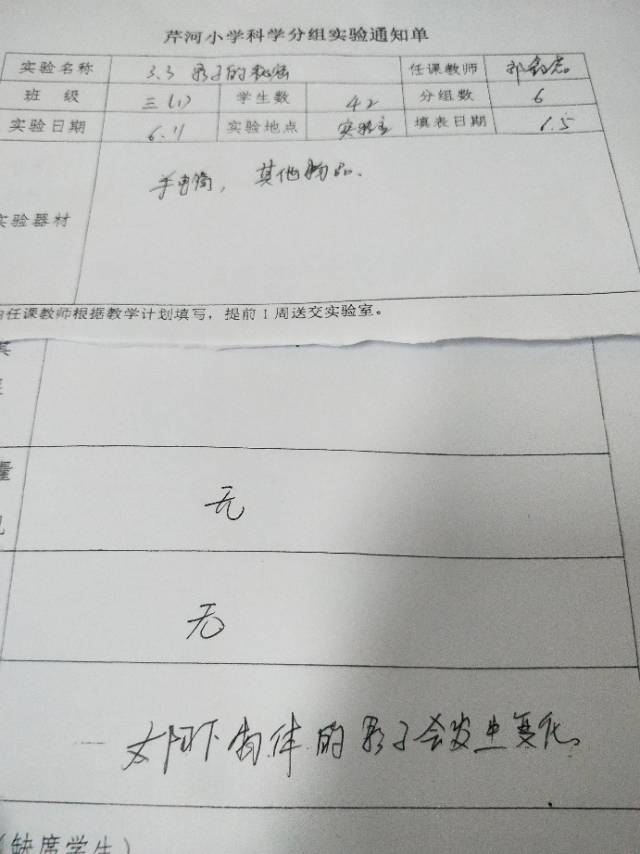 芹河小学科学分组实验通知单
实验名称 3.3 影子的秘密 任课教师
班 级 三(1) 学生数 42 分组数 6
实验日期 6.11 实验地点 实验室 填表日期 6.5
手电筒，其他物品.
实验器材
由任课教师根据教学计划填写，提前1周送交实验室。
量
无
无
太阳下物体的影子会发生变化。
(缺席学生)